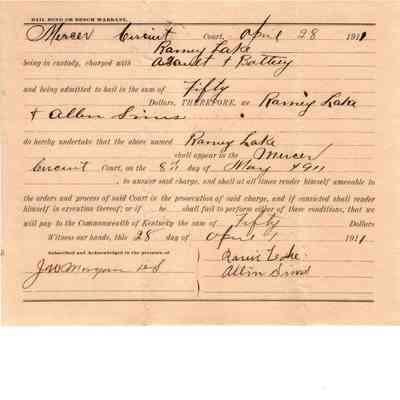 BAIL BOND OR BENCH WARRANT.
Mercer Circuit Court, April 28 1911
Ramey Lake
being in custody, charged with Assault & Battery
and being admitted to bail in the sum of Fifty
Dollars, THEREFORE, we Ramey Lake
& Allen Sims
do hereby undertake that the above named Ramey Lake
shall appear in the Mercer
Circuit Court, on the 8th day of May 1911
, to answer said charge, and shall at all times render himself amenable to
the orders and process of said Court in the prosecution of said charge, and if convicted shall render
himself in execution thereof; or if he shall fail to perform either of these conditions, that we
will pay to the Commonwealth of Kentucky the sum of Fifty Dollars
Witness our hands, this 28 day of April 1911
Subscribed and Acknowledged in the presence of
J W Morgan
Lake
Sims